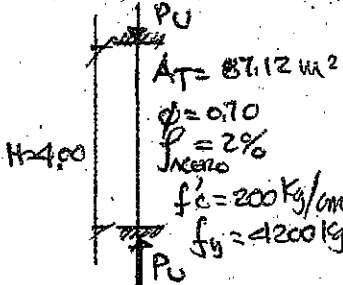 PU
AT = 87.12 m²
ϕ = 0.70
H=4.00
ρ ACERO = 2%
f'c = 200 Kg/cm
fy = 4200 Kg
PU